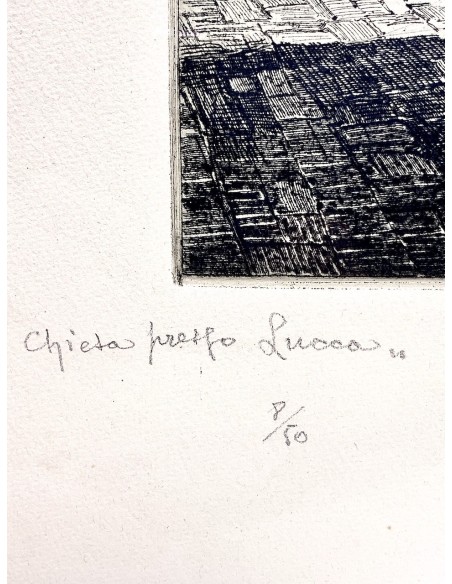 Chiesa presso Lucca„
8/50